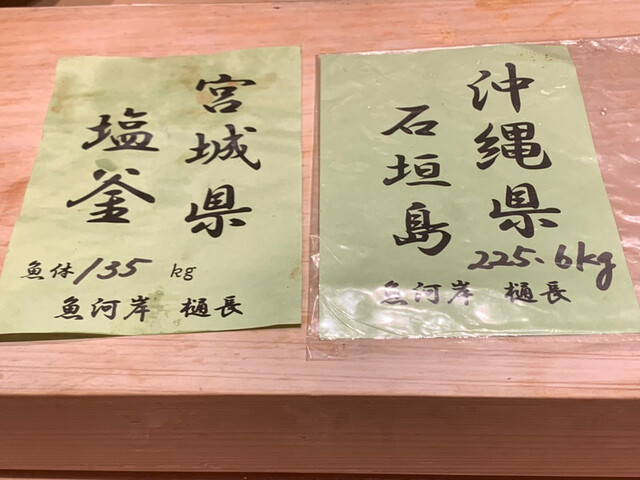 宮城県
塩釜
魚体135kg
魚河岸 樋長
沖縄県
石垣島
225.6kg
魚河岸 樋長